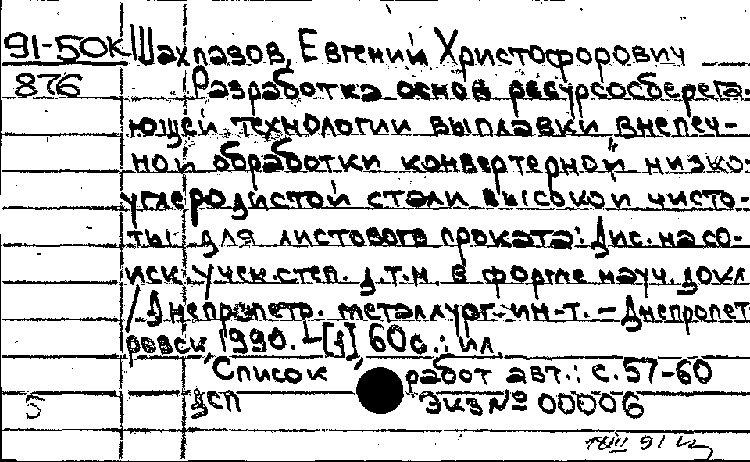 91-50К Шахпазов, Евгений Христофорович
876 Разработка основ ресурсосберега-
ющей технологии выплавки внепеч-
ной обработки конвертерной низко-
углеродистой стали высокой чисто-
ты для листового проката: Дис. на со-
иск. учен. степ. д.т.н. в форме науч. докл
/Днепропетр. металлург. ин-т. - Днепропет
ровск, 1990. - [1] 60 с.: ил.
Список работ авт.: с. 57-60
5 ДСП Экз № 00006
91